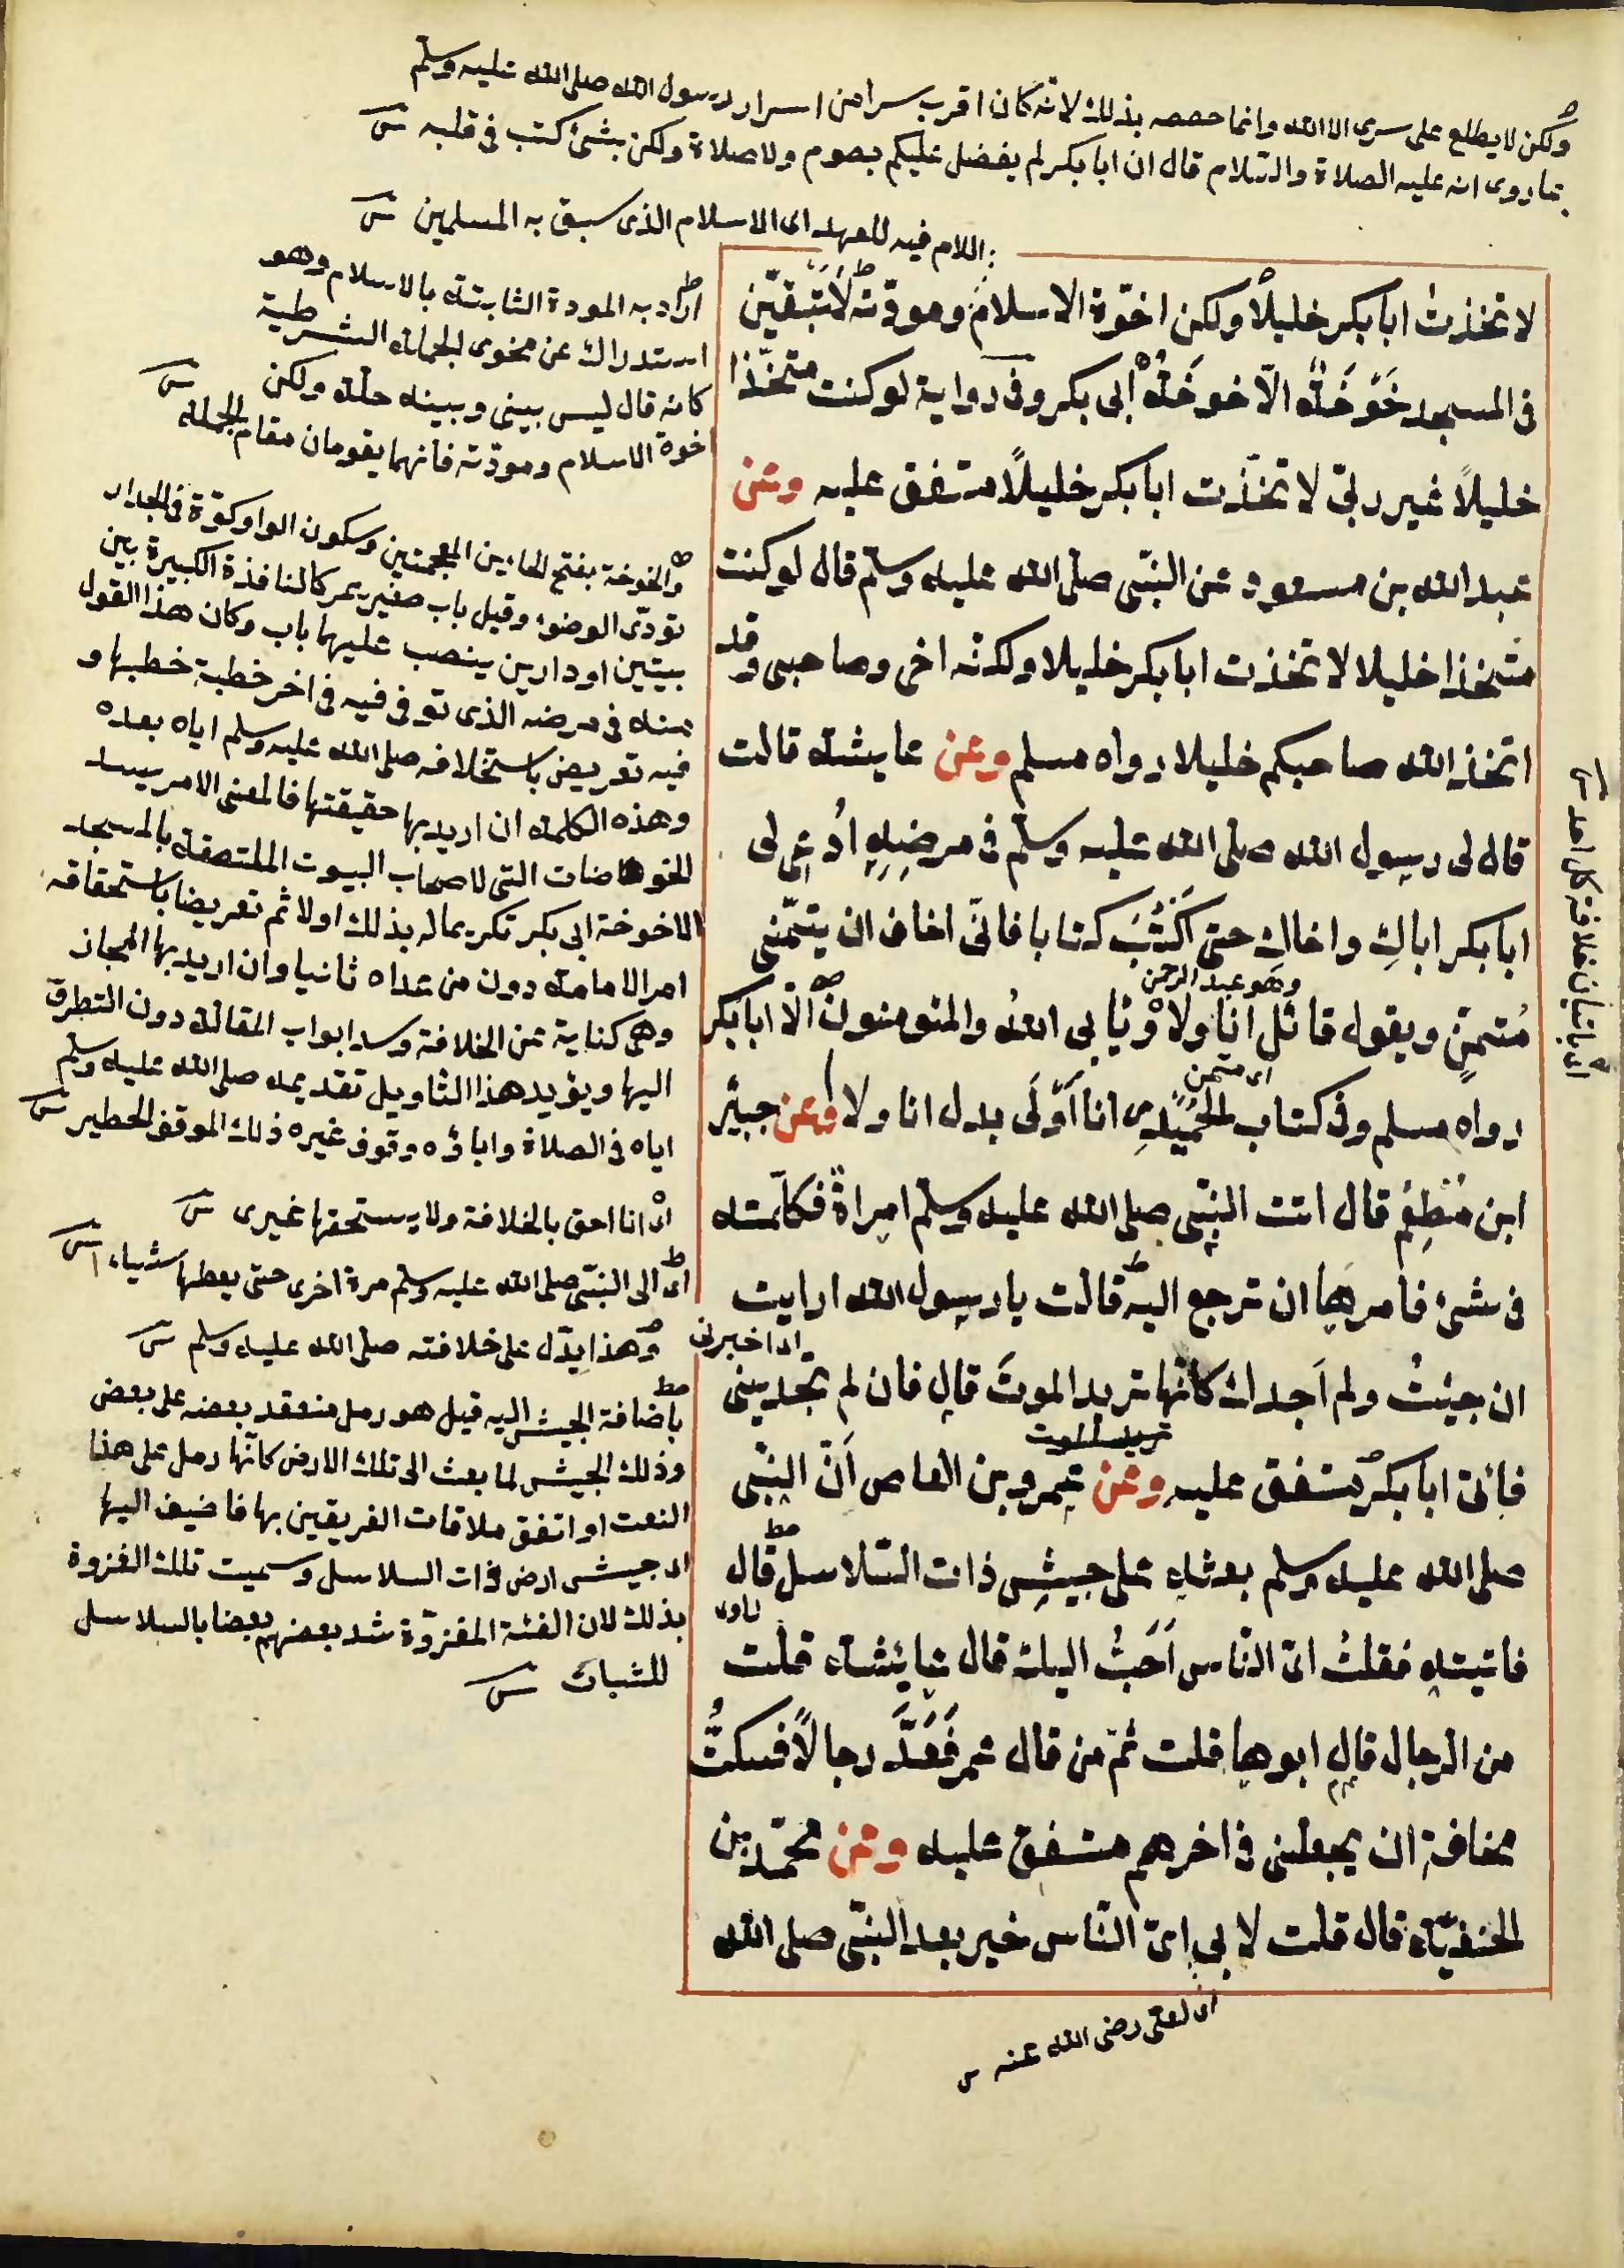 ولكن لا يطلع على سرى الا الله وانما خصصه بذلك لانه كان اقرب سرا من اسرار رسول الله صلى الله عليه وسلم
بما روى انه عليه الصلاة والسلام قال ان ابا بكر لم يفضل عليكم بصوم ولا صلاة ولكن بشئ كتب فى قلبه
اللام فيه للعهد اى الاسلام الذى سبق به المسلمين
لاتخذتُ ابا بكر خليلًا ولكن اخوّة الاسلام ومودّته لَاتَبقَيَنّ
فى المسجد خَوْخَةٌ الّا خوخَةُ ابى بكر وفى رواية لو كنت متخّذا
خليلًا غير ربّى لاتخذت ابا بكر خليلًا متفق عليه وعن
عبد الله بن مسعود عن النبّى صلى الله عليه وسلم قال لو كنت
متّخذا خليلا لاتخذت ابا بكر خليلا ولكنّه اخى وصاحبى وقد
اتخذ الله صاحبكم خليلا رواه مسلم وعن عايشة قالت
قال لى رسول الله صلى الله عليه وسلم فى مرضِهِ ادُعِى لى
ابا بكر اباكِ واخاكِ حتى اَكْتُبَ كتابا فانّى اخاف ان يتمّنى
وهو عبد الرحمن
مُتمنٍّ ويقول قائل انا ولا وْيٰابى اللهُ والمئومنونَ الّا ابا بكر
اى متمن
رواه مسلم وفى كتاب الحُمَيْدِى انا اَوْلَى بدل انا ولا وعن جبيْر
ابن مُطْعِم قال اتت النبّى صلى الله عليه وسلم امراةٌ فكلّمته
فى شئ فامرها ان ترجع اليه قالت يا رسول الله ارايت
اى اخبرنى
ان جئتُ ولم اَجدك كانّها تريد الموتَ قال فان لم تجدينى
تريد الموت
فأتى ابا بكر متفق عليه وعن عمرو بن العاص اَنّ النبّى
صلى الله عليه وسلم بعثه على جيشِ ذات السّلاسل قال
فاتيته فقلتُ اىّ النّاس اَحَبُّ اليك قال عائشة قلت
من الرجال قال ابوها قلت ثمّ من قال عمر فَعَدَّ رجالًا فسكتُّ
مخافة ان يجعلنى فى اخرهم متفق عليه وعن محمّد بن
الحنفيّة قال قلت لابى اىّ النّاس خير بعد النبّى صلى الله
اى لعلى رضى الله عنه
اراد به المودة الثابتة بالاسلام وهو
استدراك عن فحوى الجملة الشرطية
كانه قال ليس بينى وبينه خلة ولكن
اخوة الاسلام ومودّته فانهما يقومان مقام الجملة
والخوخة بفتح الخاءين المعجمتين وسكون الواو كوّة فى الجدار
تودّى الضوء وقيل باب صغير يمر كالنافذة الكبيرة بين
بيتين او دارين ينصب عليها باب وكان هذا القول
منه فى مرضه الذى توفى فيه فى اخر خطبة خطبها و
فيه تعريض باستخلافه صلى الله عليه وسلم اياه بعده
وهذه الكلمة ان اريد بها حقيقتها فالمعنى الامر بسد
الخوخات التى لاصحاب البيوت الملتصقة بالمسجد
الا خوخة ابى بكر تكريما له بذلك اولا ثم تعريضا باستحقاقه
امر الامامة دون من عداه ثانيا وان اريد بها المجاز
وهى كناية عن الخلافة وسد ابواب المقالة دون التطرق
اليها ويؤيد هذا التاويل تقديمه صلى الله عليه وسلم
اياه فى الصلاة واباؤه وقوف غيره ذلك الموقف الخطير
اى انا احق بالخلافة ولا يستحقها غيرى
اى الى النبّى صلى الله عليه وسلم مرة اخرى حتى يعطيها شياء
وهذا يدّل على خلافته صلى الله عليه وسلم
باضافة الجيش اليه قيل هو رمل منعقد بعضه على بعض
وذلك الجيش لما بعث الى تلك الارض كانّها رمل على هذا
النعت او اتفق ملاقات الفريقين بها فاضيف اليها
اى جيش ارض ذات السلاسل وسميت تلك الغزوة
بذلك لان الفئة المغزوّة شد بعضهم بعضا بالسلاسل
للثبات